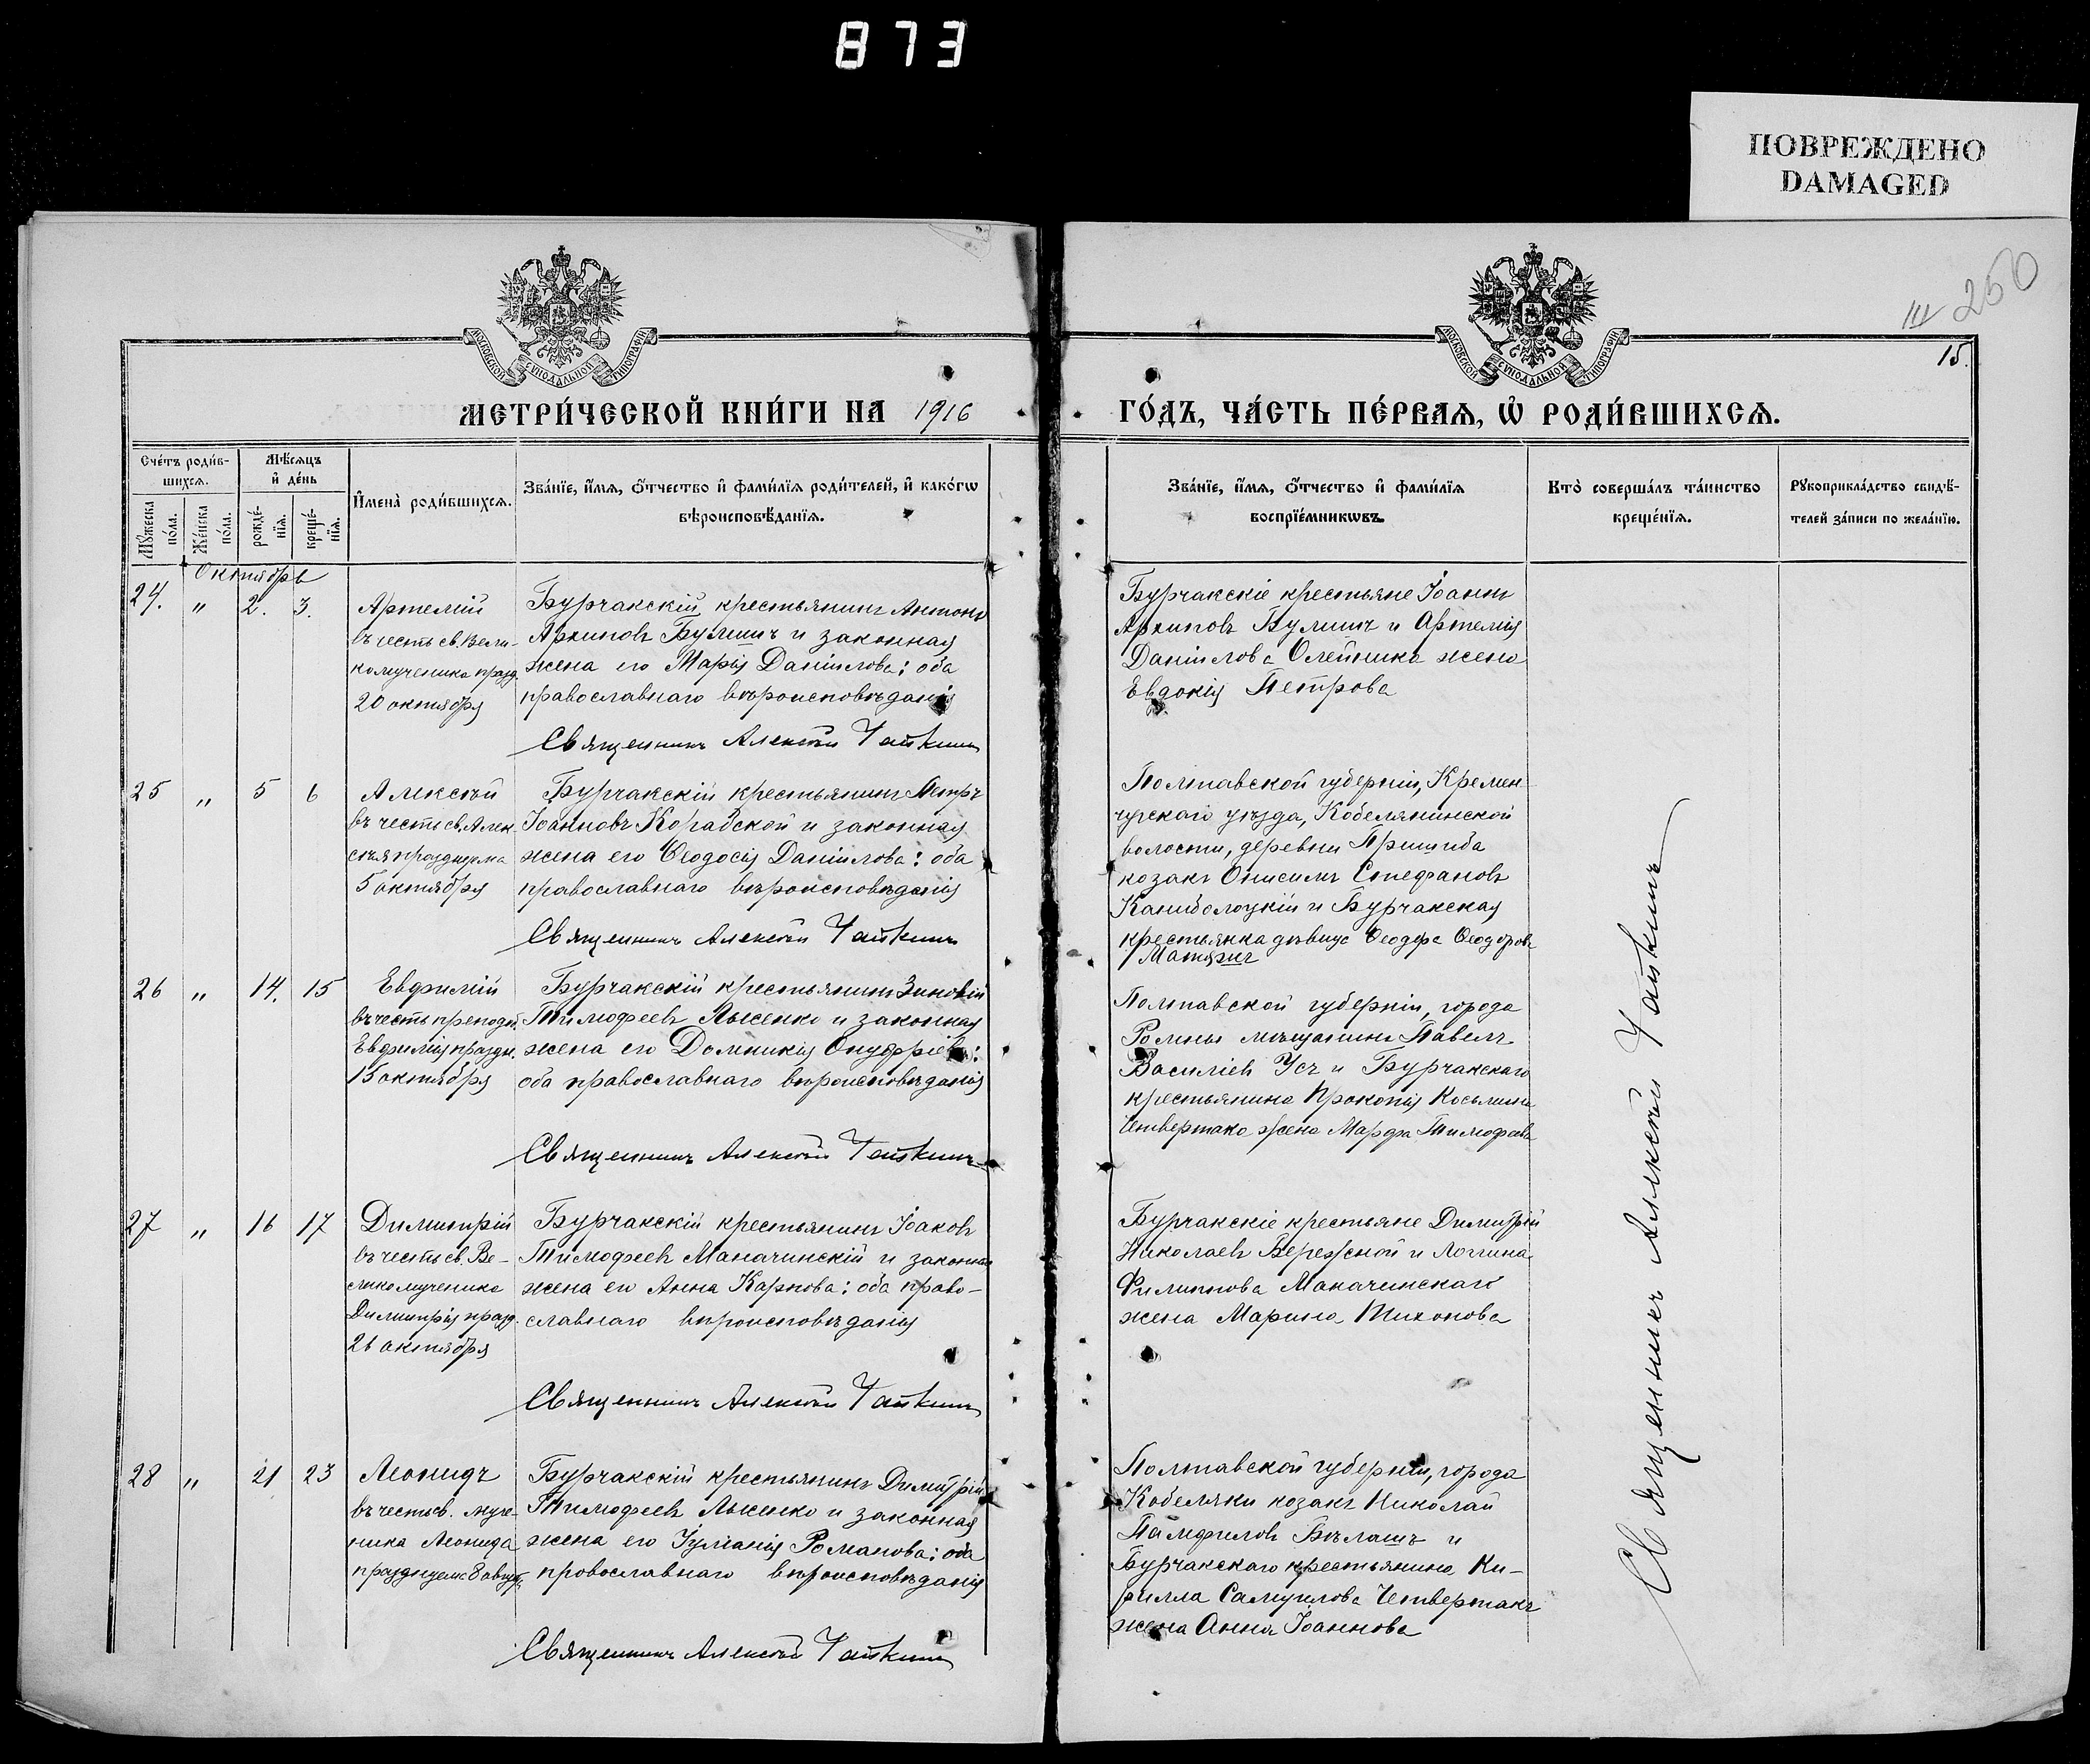 873
ПОВРЕЖДЕНО
DAMAGED
250
15.
МОСКОВСКОЙ СУНОДАЛЬНОЙ ТИПОГРАФІИ
МОСКОВСКОЙ СУНОДАЛЬНОЙ ТИПОГРАФІИ
МЕТРИ́ЧЕСКОЙ КНИ́ГИ НА 1916
ГО́ДЪ, ЧА́СТЬ ПЕ́РВАѦ, Ѡ҆ РОДИ́ВШИХСѦ.
Сче́тъ роди́в-
шихсѧ.
Мꙋ́жеска
по́ла.
Же́нска
по́ла.
Мѣ́сѧцъ
и҆ де́нь
рожде́-
нїѧ.
креще́-
нїѧ.
И҆мена̀ роди́вшихсѧ.
Зва́нїе, и҆́мѧ, ѻ҆́тчество и҆ фами́лїѧ роди́телей, и҆ како́гѡ
вѣроисповѣ́данїѧ.
Зва́нїе, и҆́мѧ, ѻ҆́тчество и҆ фами́лїѧ
воспрїе́мникѡвъ.
Кто̀ соверша́лъ та́инство
креще́нїѧ.
Рꙋкоприкла́дство свидѣ́-
телей за́писи по жела́нїю.
Октябрь
24. " 2. 3.
Артемій
въ честь св. Вели-
комученика празд.
20 октября
Бурчакскій крестьянинъ Антонъ
Архиповъ Булшич и законная
жена его Марія Даніилова: оба
православнаго вѣроисповѣданія
Священникъ Алексѣй Чайкинъ
Бурчакскіе крестьяне Іоаннъ
Архиповъ и Артемія
Даніилова Олейника жена
Евдокія Петрова
25 " 5 6
Алексѣй
въ честь св. Алек-
сѣя празднуема
5 октября
Бурчакскій крестьянинъ Петръ
Іоанновъ Корабской и законная
жена его Ѳеодосія Даніилова: оба
православнаго вѣроисповѣданія
Священникъ Алексѣй Чайкинъ
Полтавской губерніи, Кремен
чугскаго уѣзда, Кобелякинской
волости, деревни Пришиба
козакъ Онисимъ Стефановъ
Каниболоцкій и Бурчакская
крестьянка дѣвица Ѳеодора Ѳеодорова
26 " 14. 15
Евфимій
въ честь преподоб.
Евфимія праздн.
15 октября
Бурчакскій крестьянинъ Зиновій
Тимофеевъ Лысенко и законная
жена его Домникія Онуфріева:
оба православнаго вѣроисповѣданія
Священникъ Алексѣй Чайкинъ
Полтавской губерніи, города
Ромны мѣщанинъ Павелъ
Василіевъ Усъ и Бурчакскаго
крестьянина Прокопія Косьмина
Четвертака жена Марфа Тимофеева
27 " 16 17
Димитрій
въ честь св. Ве-
ликомученика
Димитрія празд.
26 октября
Бурчакскій крестьянинъ Іаковъ
Тимофеевъ Маначинскій и законная
жена его Анна Карпова: оба право-
славнаго вѣроисповѣданія
Священникъ Алексѣй Чайкинъ
Бурчакскіе крестьяне Димитрій
Николаевъ Бережной и Логгина
Филиппова Маначинскаго
жена Марина Тихонова
28 " 21 23
Леонидъ
въ честь св. муче-
ника Леонида
празднуема 8 август.
Бурчакскій крестьянинъ Димитрій
Тимофеевъ Лысенко и законная
жена его Іуліанія Романова: оба
провославнаго вѣроисповѣданія
Священникъ Алексѣй Чайкинъ
Полтавской губерніи, города
Кобеляки козакъ Николай
Памфиловъ Бѣлашъ и
Бурчакскаго крестьянина Ки-
рилла Самуилова Четвертакъ
жена Анна Іоаннова
Священникъ Алексѣй Чайкинъ